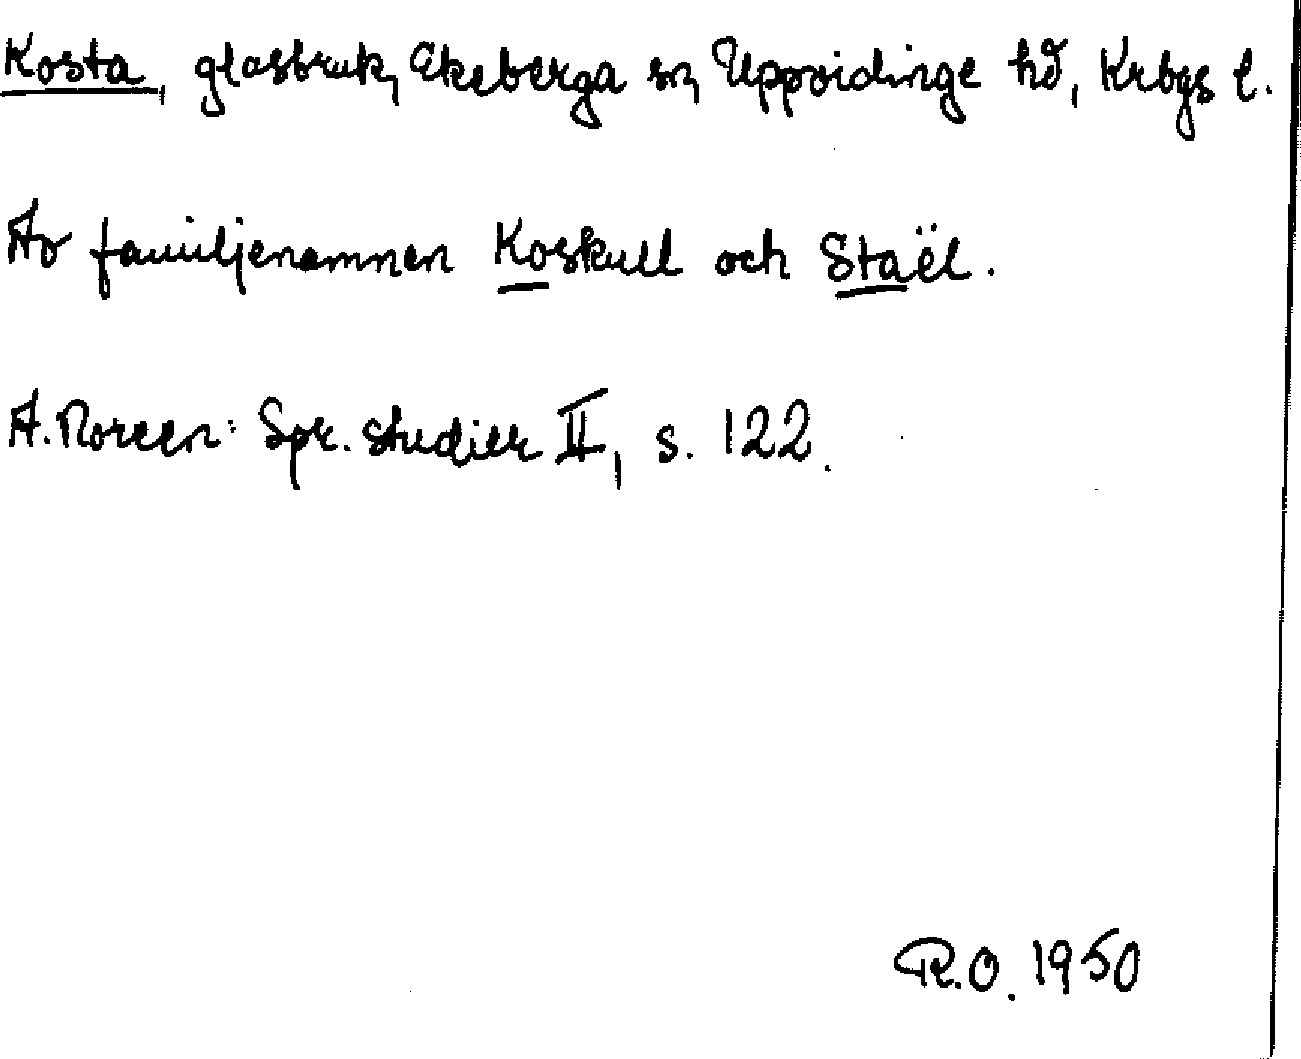 Kosta, glasbruk, Ekeberga sn, Uppvidinge hd, Krbgs l.
Av familjenamnen Koskull och Staël.
A. Noreen: Spr. studier II, s. 122.
R.O. 1950